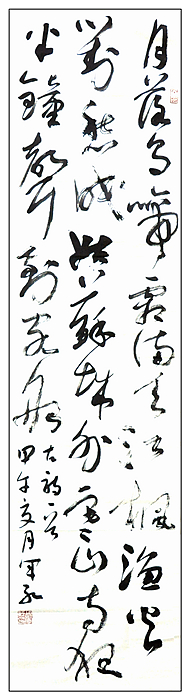 月落乌啼霜满天江枫渔火
对愁眠姑苏城外寒山寺夜
半钟声到客船
古诗一首
甲午夏月军